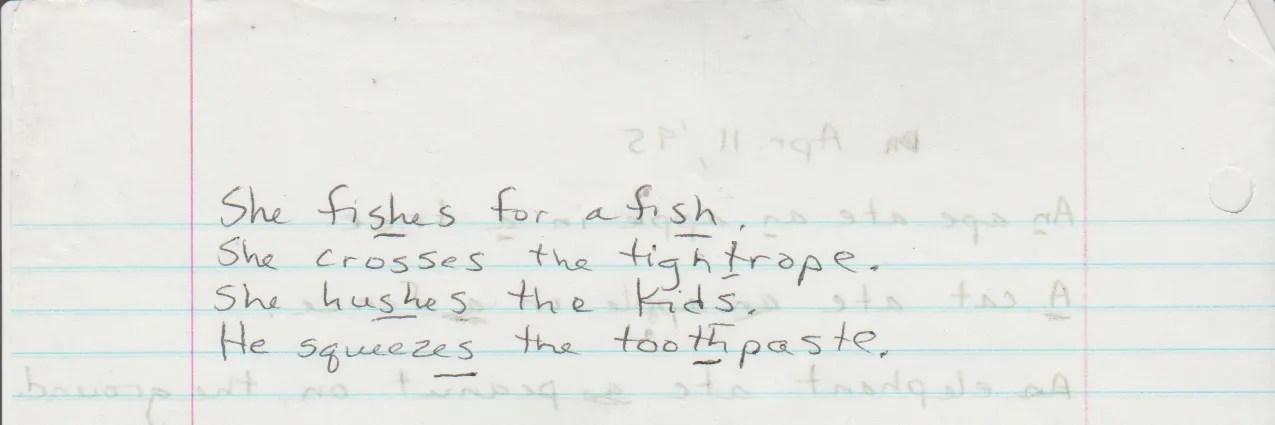 She fishes for a fish.
She crosses the tightrope.
She hushes the kids.
He squeezes the toothpaste.